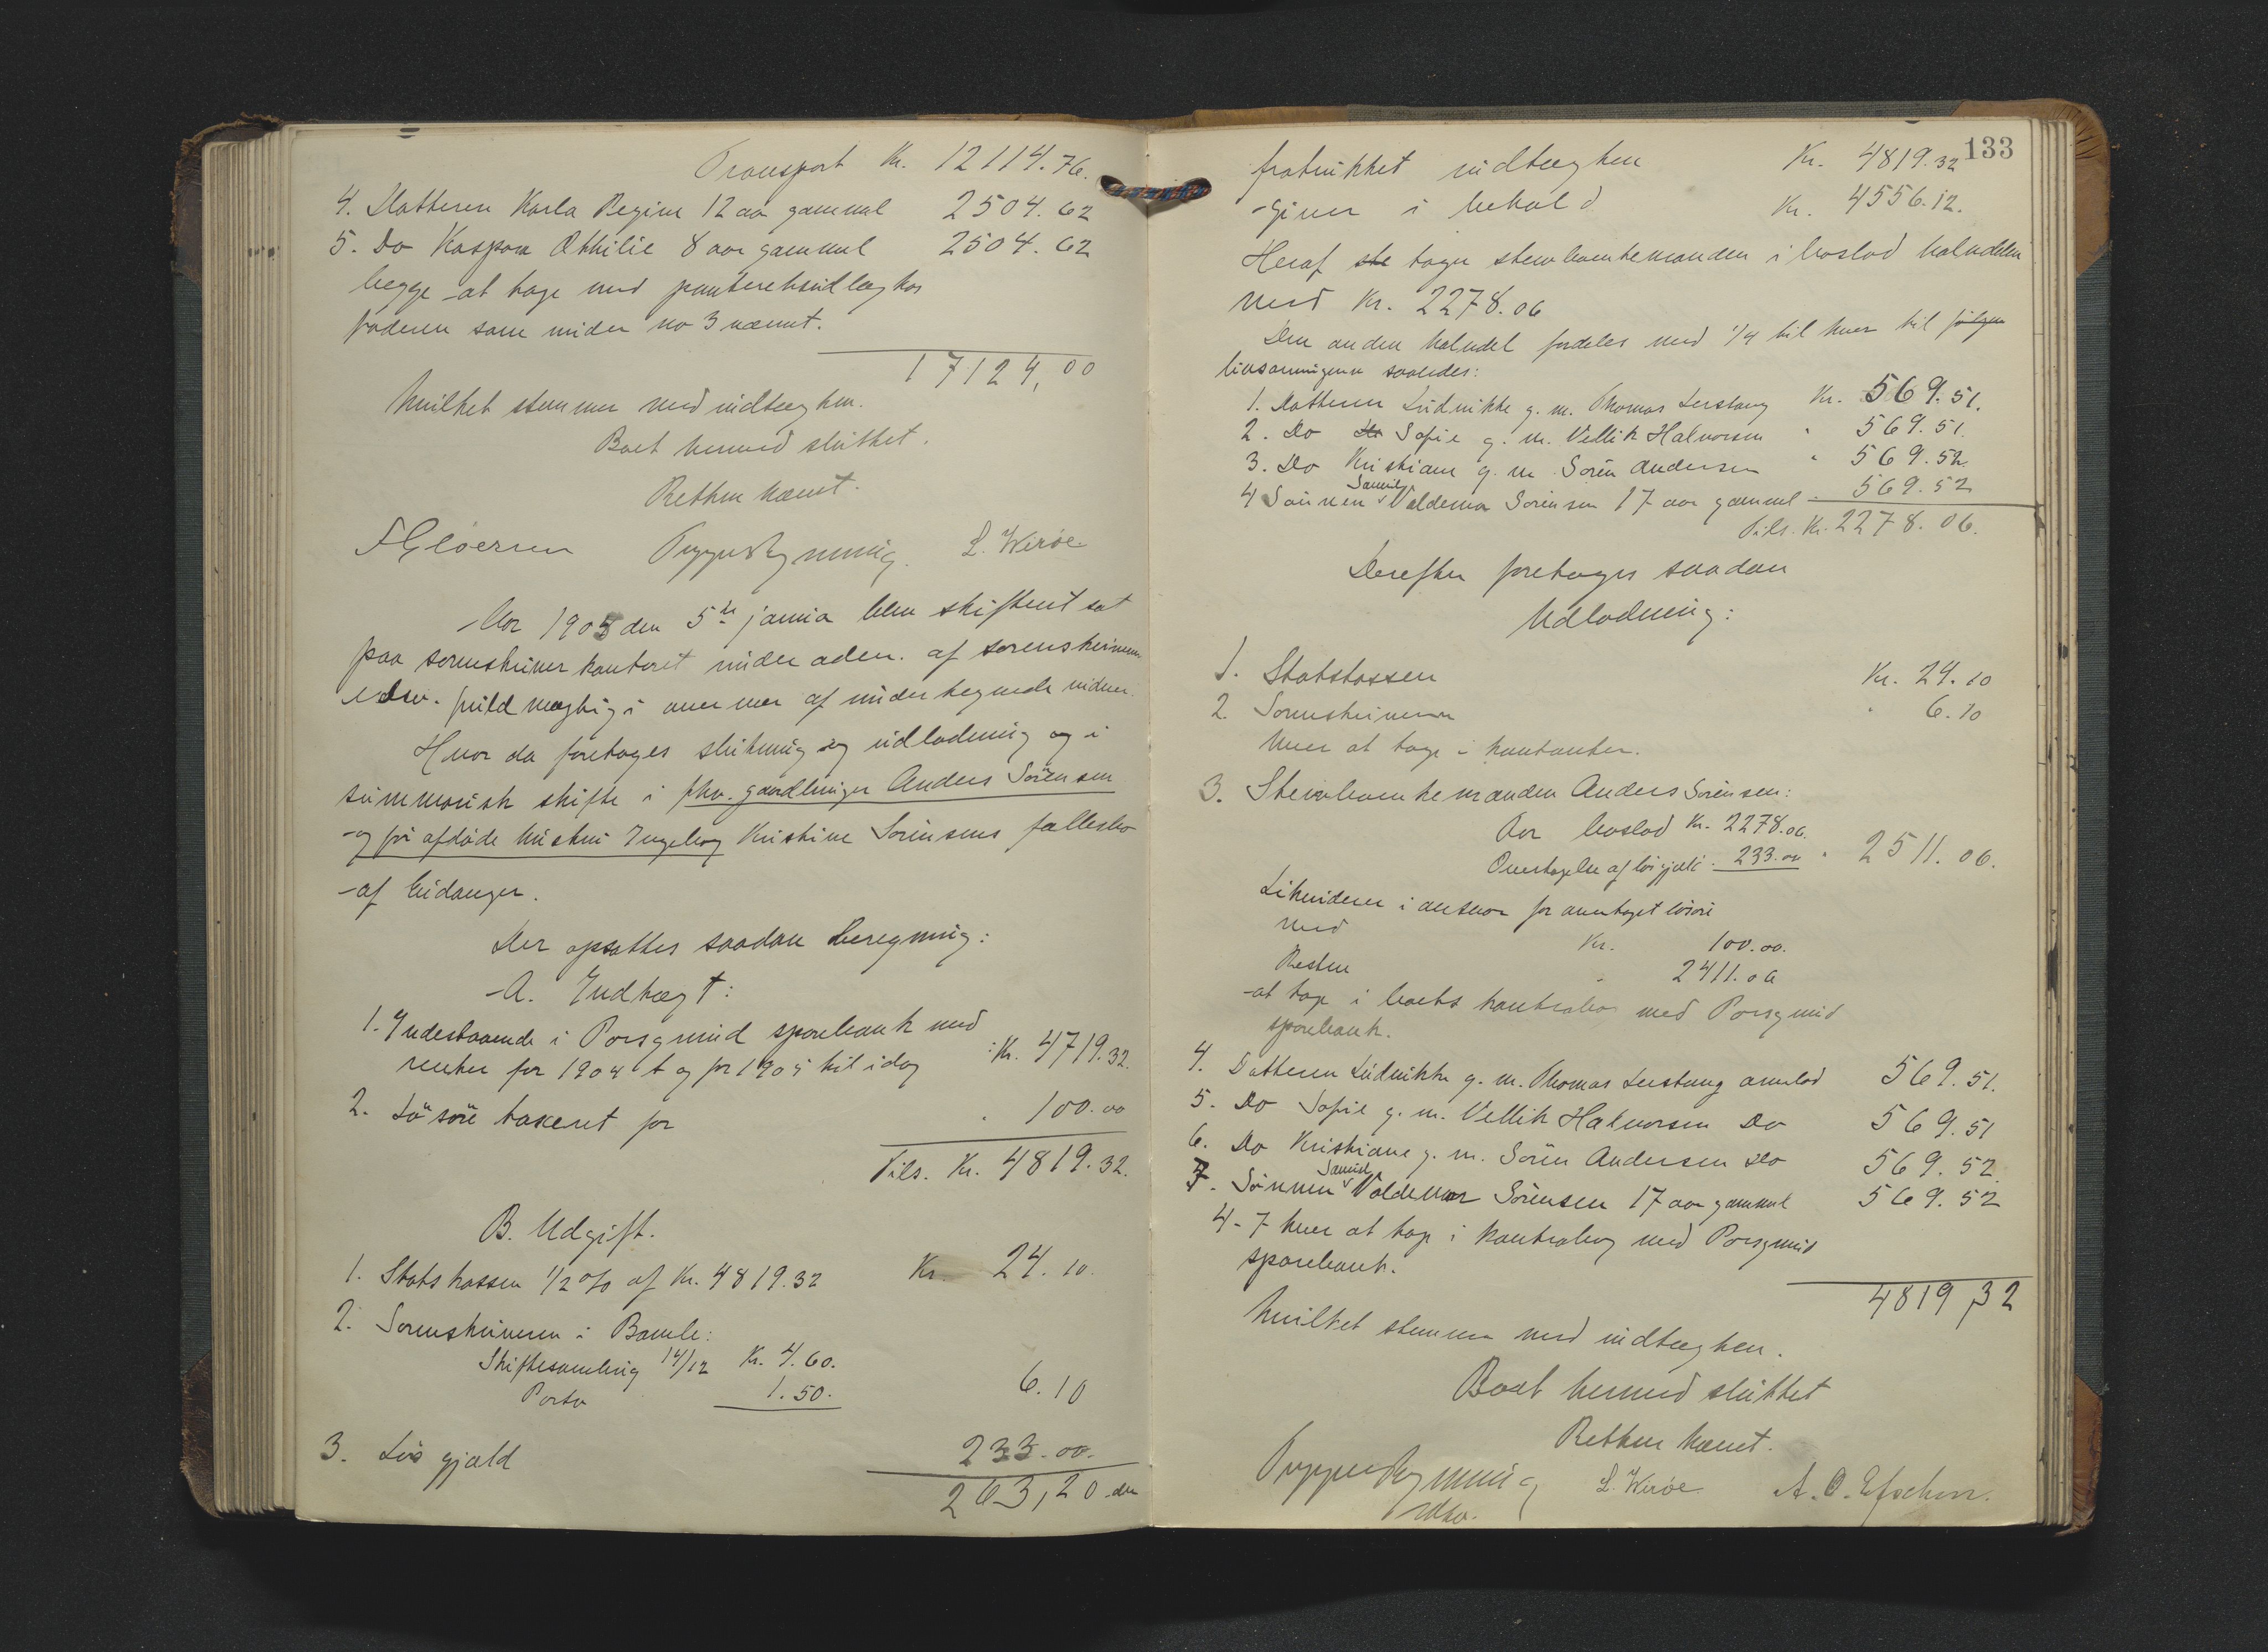 Transport Kr. 12114.76.
4. Datteren Karla Regine 12 aar gammel 2504.62
5. Do Kaspara Othilie 8 aar gammel 2504.62
begge at tage med panteretsindtægt hos
faderen som under no 3 nævnt.
17124,00
Hvilket stemmer med indtægten.
Boet hermed sluttet.
Retten hævet.
L. Werøe
Aar 1905 den 5te januar blev skifteret sat
paa sorenskriverkontoret under adm. af sorenskriveren
edsv. fuldmægtig i overvær af undertegnede vidner.
Hvor da foretoges slutning og udlodning og i
summarisk skifte i fhv. gaardbruger Anders Sörensen
og før afdöde hustru Ingeborg Kristine Sörensens fællesbo
af Eidanger.
Der opsattes saadan Beregning:
A. Indtægt:
1. Indestaaende i Porsgrund sparebank med
renter for 1904 t og for 1905 til idag : Kr. 4719.32.
2. Lösöre taxeret for " 100.00
Tils. Kr. 4819.32.
B. Udgift.
1. Statskassen 1/2 % af Kr. 4819.32 Kr. 24.10.
2. Sorenskriveren i Bamle:
Skiftesamling 14/12 Kr. 4.60.
Porto 1.50. 6.10
3. Lös gjæld 233.00.
263,20 der
133
fratrukket indtægten Kr. 4819.32
Giver i behold Kr. 4556.12.
Heraf ste tager stervboenkemanden i boslod halvdelen
med Kr. 2278.06
Den anden halvdel fordeles med 1/4 til hver til følgen
livsarvingerne saaledes:
1. Datteren Ludvikke g. m. Thomas Lerstang Kr. 569.51.
2. Do Do Sofie g. m. Vellik Halvorsen " 569.51.
3. Do Kristiane g. m. Sören Andersen " 569.52.
Samuel
4 Sönnen Valdemar Sörensen 17 aar gammel - 569.52
Tils. Kr. 2278.06.
Derefter foretoges saadan
Udlodning:
1. Statskassen Kr. 24.10
2. Sorenskriveren " 6.10
hver at tage i kontanter.
3. Stervboenkemanden Anders Sörensen:
Arv boslod Kr. 2278.06.
Overtagelse af lös gjæld - 233.00 " 2511.06.
Likviderer i ansvar for overtaget lösöre
med Kr. 100.00.
Resten " 2411.06
at tage i boets kontrabog med Porsgrund
sparebank.
4. Datteren Ludvikke g. m. Thomas Lerstang arvelod 569.51.
5. Do Sofie g. m. Vellik Halvorsen Do 569.51
6. Do Kristiane g. m. Sören Andersen Do 569.52.
Samuel
7. Sönnen Valdemar Sörensen 17 aar gammel 569.52
4-7 hver at tage i kontrabog med Porsgrund
sparebank.
4819,32
Hvilket stemmer med indtægten.
Boet hermed sluttet
Retten hævet.
L. Werøe
edsv.